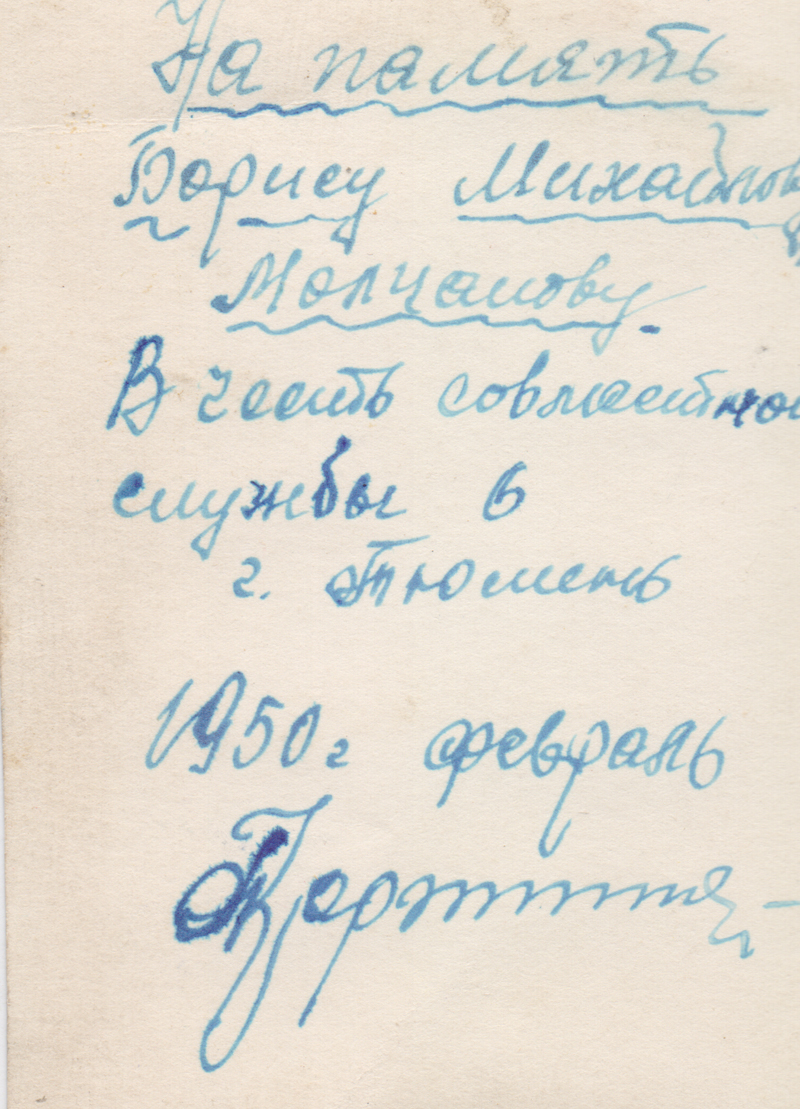 На память
Борису Михайлову
Молчанову
В честь совместной
службы в
г. Тюмень
1950 г февраль